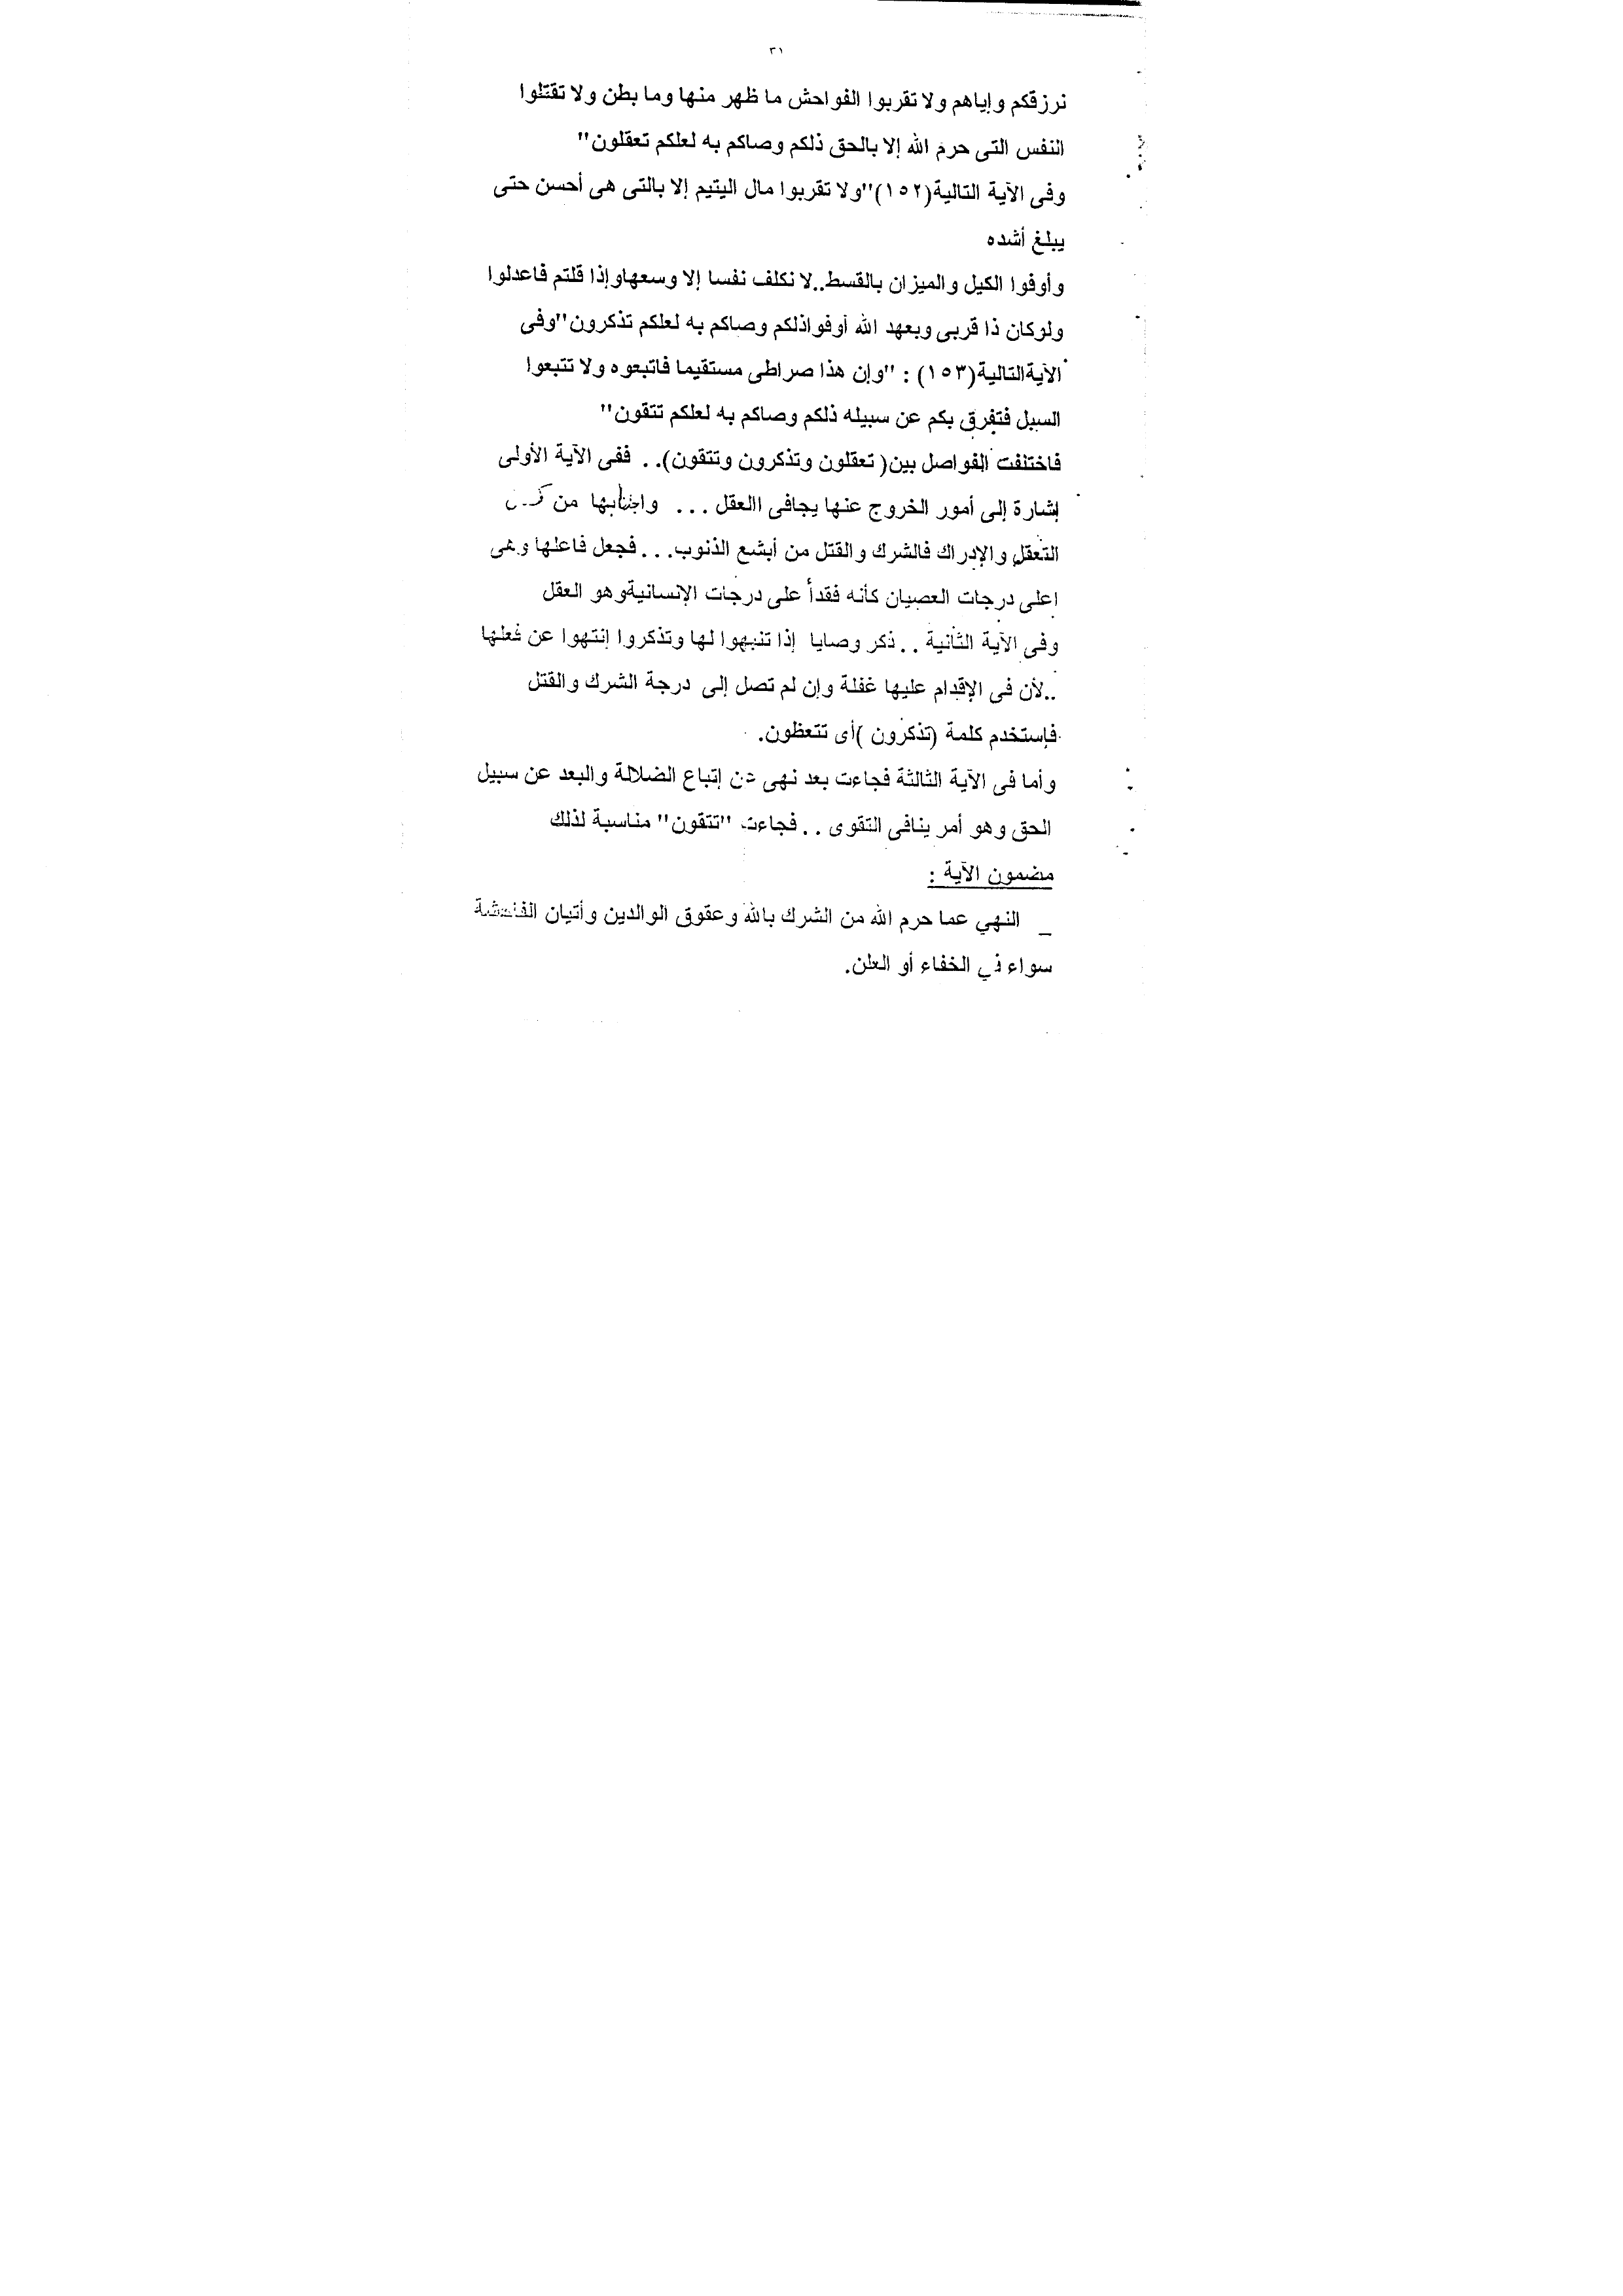 ٣١
نرزقكم وإياهم ولا تقربوا الفواحش ما ظهر منها وما بطن ولا تقتلوا
النفس التى حرم الله إلا بالحق ذلكم وصاكم به لعلكم تعقلون"
وفى الآية التالية(١٥٢)"ولا تقربوا مال اليتيم إلا بالتى هى أحسن حتى
يبلغ أشده
وأوفوا الكيل والميزان بالقسط..لا نكلف نفسا إلا وسعهاوإذا قلتم فاعدلوا
ولوكان ذا قربى وبعهد الله أوفواذلكم وصاكم به لعلكم تذكرون"وفى
الآيةالتالية(١٥٣) : "وإن هذا صراطى مستقيما فاتبعوه ولا تتبعوا
السبل فتفرق بكم عن سبيله ذلكم وصاكم به لعلكم تتقون"
فاختلفت الفواصل بين( تعقلون وتذكرون وتتقون).. ففى الآية الأولى
إشارة إلى أمور الخروج عنها يجافى االعقل ... واجتنابها من
التعقل والإدراك فالشرك والقتل من أبشع الذنوب...فجعل فاعلها وهى
اعلى درجات العصيان كأنه فقدأ على درجات الإنسانيةوهو العقل
وفى الآية الثانية ..ذكر وصايا إذا تنبهوا لها وتذكروا إنتهوا عن فعلها
..لأن فى الإقدام عليها غفلة وإن لم تصل إلى درجة الشرك والقتل
فإستخدم كلمة (تذكرون )أى تتعظون.
وأما فى الآية الثالثة فجاءت بعد نهى عن إتباع الضلالة والبعد عن سبيل
الحق وهو أمر ينافى التقوى ..فجاءت "تتقون" مناسبة لذلك
مضمون الآية :
_ النهي عما حرم الله من الشرك بالله وعقوق الوالدين وأتيان الفاحشة
سواء في الخفاء أو العلن.